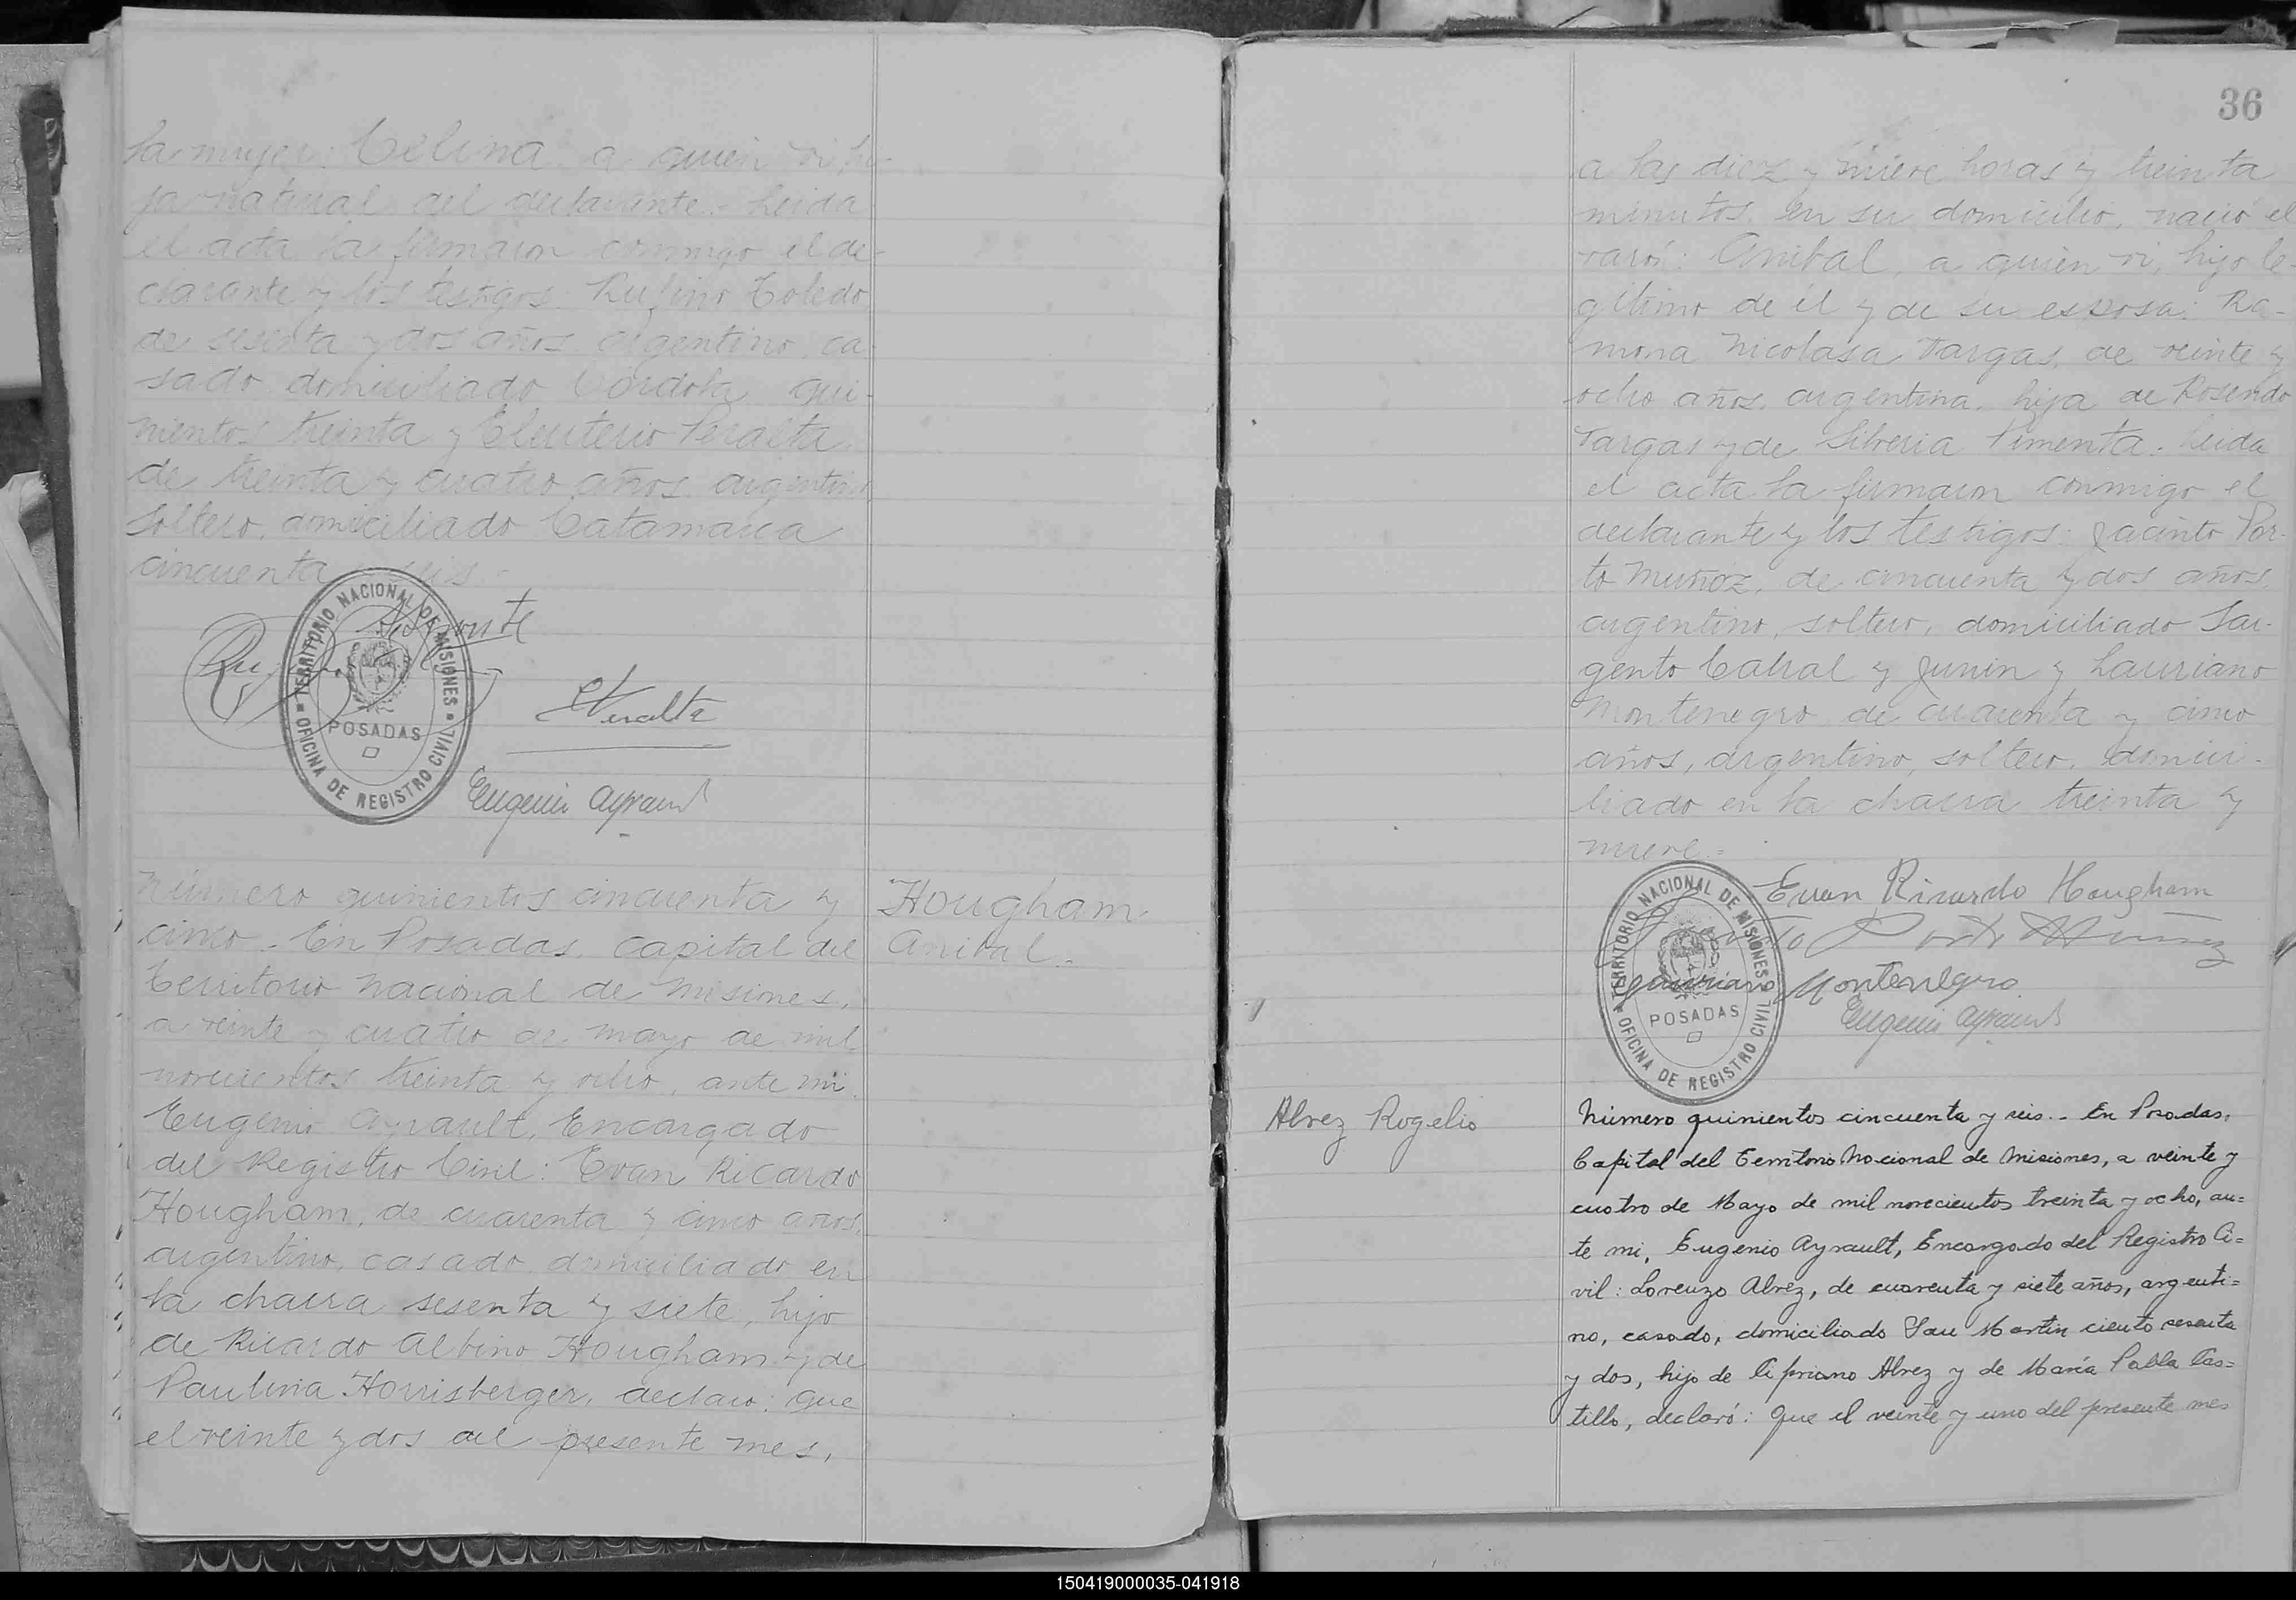 la mujer: Celina a quien vi, hi-
ja natural del declarante.- Leida
el acta la firmaron conmigo el de-
clarante y los testigos: Rufino Toledo
de sesenta y dos años, argentino, ca-
sado, domiciliado Córdoba qui-
nientos treinta y Eleuterio Peralta
de treinta y cuatro años, argentino
soltero, domiciliado Catamarca
cincuenta seis.-
TERRITORIO NACIONAL DE MISIONES
POSADAS
OFICINA DE REGISTRO CIVIL
EPeralta
Eugenio Ayrault
Número quinientos cincuenta y
cinco.- En Posadas, Capital del
Territorio Nacional de Misiones,
a veinte y cuatro de mayo de mil
novecientos treinta y ocho, ante mi
Eugenio Ayrault, Encargado
del Registro Civil: Evan Ricardo
Hougham, de cuarenta y cinco años,
argentino, casado, domiciliado en
la chacra sesenta y siete, hijo
de Ricardo Albino Hougham y de
Paulina Horrisberger, declaró: Que
el veinte y dos del presente mes,
Hougham
Anibal.-
36
a las diez y nueve horas y treinta
minutos, en su domicilio, nació el
varón: Anibal, a quien vi, hijo le-
gítimo de él y de su esposa: Ra-
mona Nicolasa Vargas, de veinte y
ocho años, argentina, hija de Rosendo
Vargas y de Silveria Pimenta. Leida
el acta la firmaron conmigo el
declarante y los testigos: Jacinto Por-
to Muñoz, de cincuenta y dos años,
argentino, soltero, domiciliado Sar-
gento Cabral y Junin y Lauriano
Montenegro de cuarenta y cinco
años, argentino, soltero, domici-
liado en la chacra treinta y
nueve.-
Evan Ricardo Hougham
Porto Muñoz
Lauriano Montenegro
Eugenio Ayrault
TERRITORIO NACIONAL DE MISIONES
POSADAS
OFICINA DE REGISTRO CIVIL
Alvez Rogelio
Número quinientos cincuenta y seis.- En Posadas,
Capital del Territorio Nacional de Misiones, a veinte y
cuatro de Mayo de mil novecientos treinta y ocho, an=
te mi, Eugenio Ayrault, Encargado del Registro Ci=
vil: Lorenzo Alvez, de cuarenta y siete años, argenti=
no, casado, domiciliado San Martin ciento sesenta
y dos, hijo de Cipriano Alvez y de María Pabla Cas=
tillo, declaró: Que el veinte y uno del presente mes
150419000035-041918